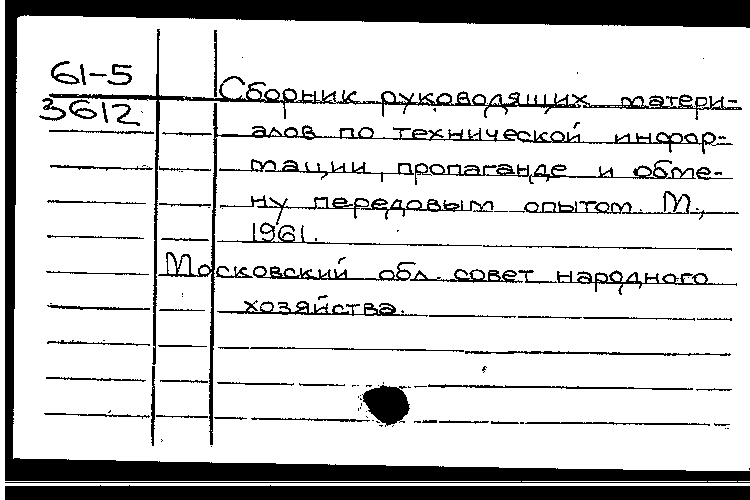 61-5
3612
Сборник руководящих матери-
алов по технической инфор-
мации, пропаганде и обме-
ну передовым опытом. М.,
1961.
Московский обл. совет народного
хозяйства.